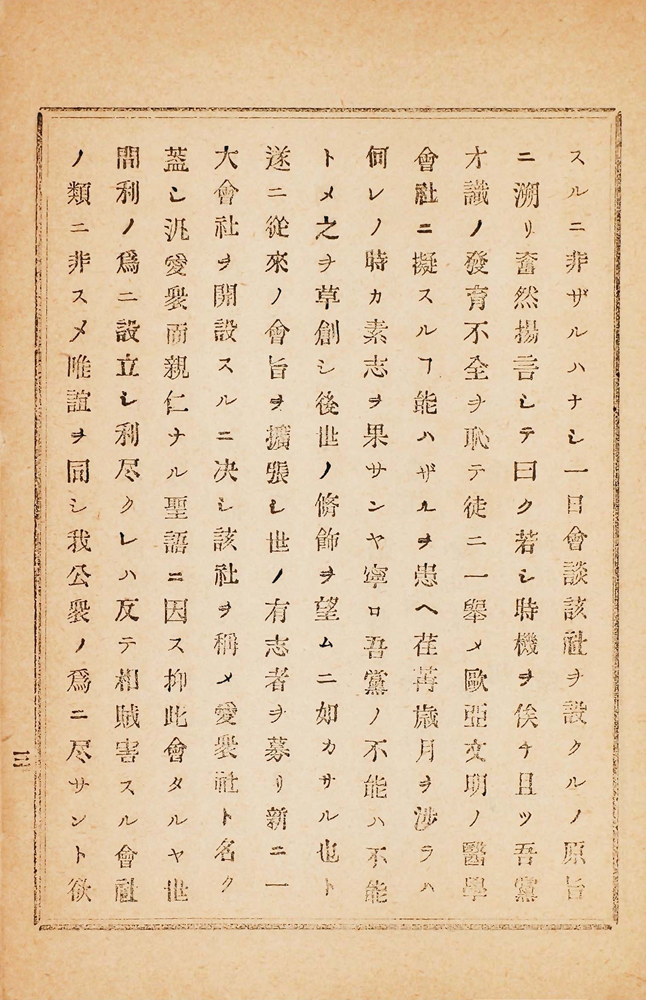 スルニ非ザルハナシ一日會談該社ヲ設クルノ原旨
ニ溯リ奮然揚言シテ曰ク若シ時機ヲ俟チ且ツ吾黨
才識ノ發育不全ヲ恥テ徒ニ一擧メ歐亞文明ノ醫學
會社ニ擬スルヿ能ハザルヲ患ヘ荏苒歳月ヲ渉ラハ
何レノ時カ素志ヲ果サンヤ寧ロ吾黨ノ不能ハ不能
トメ之ヲ草創シ後世ノ脩飾ヲ望ムニ如カサル也ト
遂ニ從來ノ會旨ヲ擴張シ世ノ有志者ヲ募リ新ニ一
大會社ヲ開設スルニ决シ該社ヲ稱メ愛衆社ト名ク
蓋シ汎愛衆而親仁ナル聖語ニ因ス抑此會タルヤ世
間利ノ爲ニ設立シ利尽クレハ反テ相賊害スル會社
ノ類ニ非スメ唯誼ヲ同シ我公衆ノ爲ニ尽サント欲
三